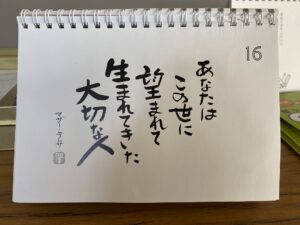 16
あなたは
この世に
望まれて
生まれてきた
大切な人
マザー・テレサ